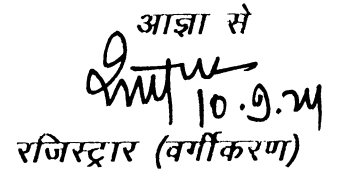 आज्ञा से
10.9.24
रजिस्ट्रार (वर्गीकरण)